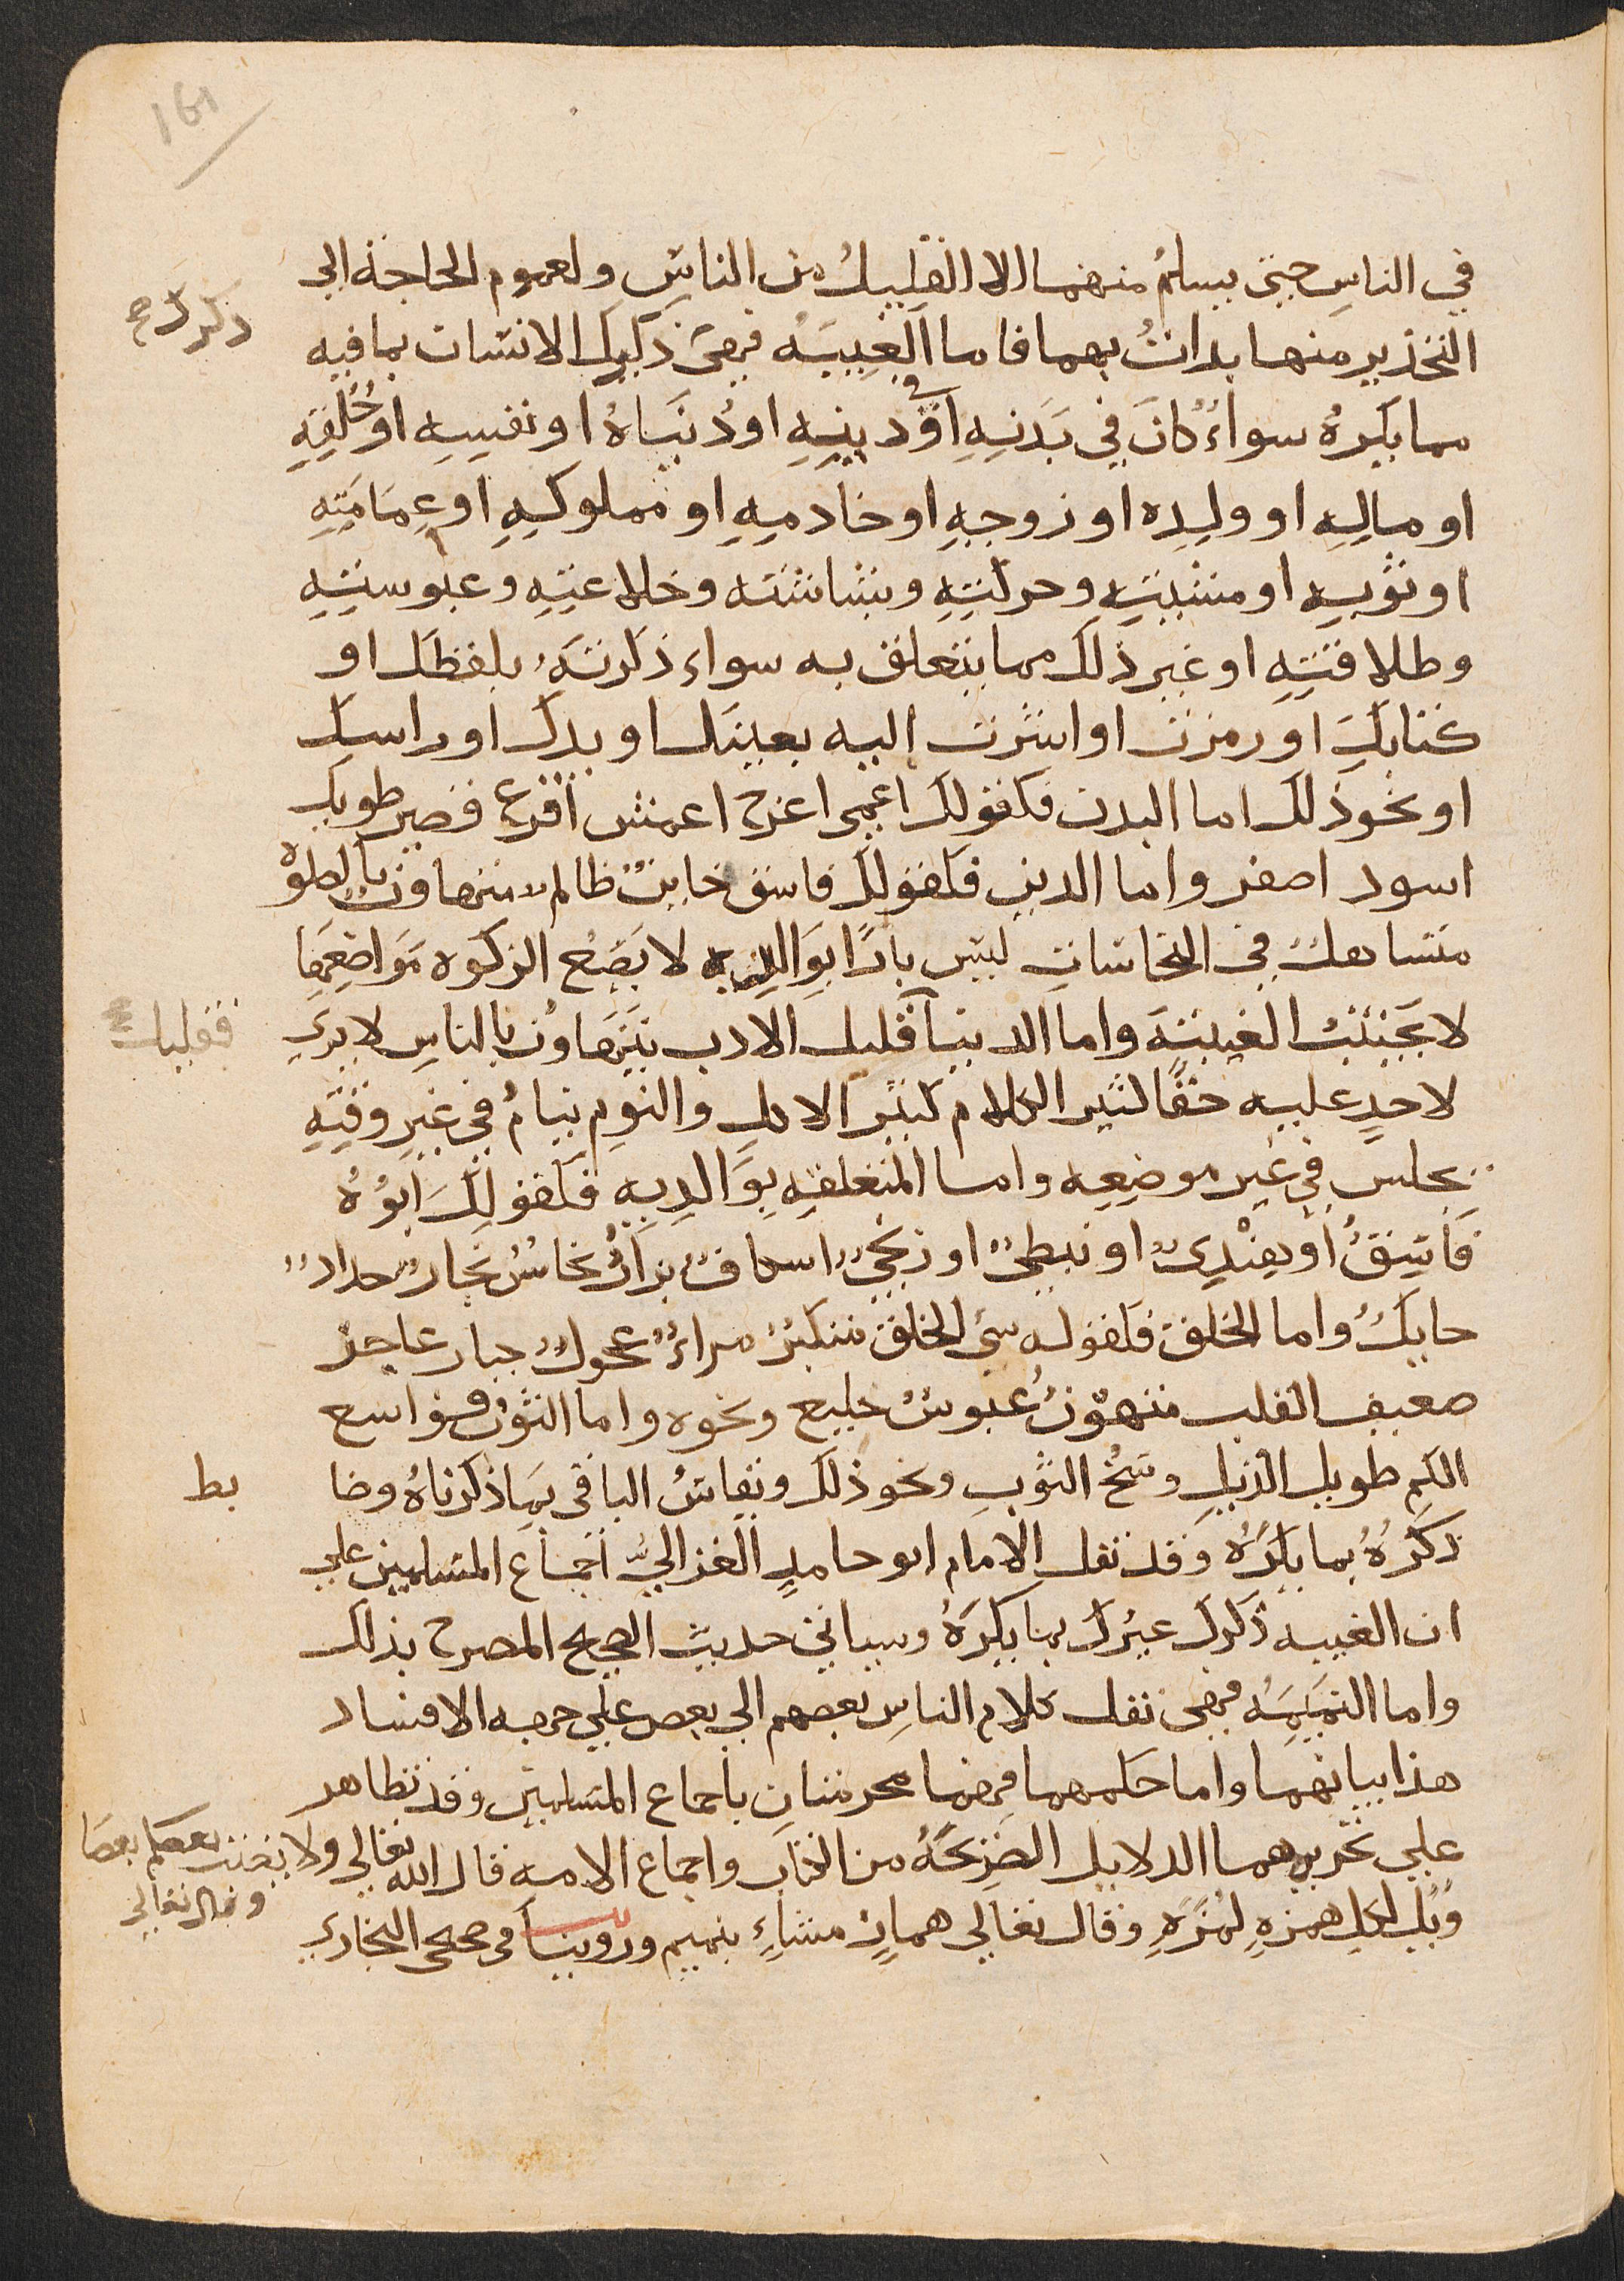 161
في الناسِ حتى يسلمُ منهما الا القليلُ من الناسِ ولعموم الحاجة الى
التحذير منها بدات بهما فاما الغيبَه فهى ذكرك الانسان بما فيه
ذكرك ح
مما يكرهُ سواءٌ كان في بَدَنِهِ او في دِينِهِ او دُنيَاهُ او نفسِهِ او خُلُقِهِ
او مالِهِ او ولدِه او زوجِهِ او خادمِهِ او مملوكِهِ او عِمَامَتِهِ
او ثوبِهِ او مشيتِهِ وحركتِهِ وبشاشته وخلاعتِهِ وعبوستِهِ
وطلاقتِهِ او غير ذلك مما يتعلق به سواء ذكرتَهُ بلفظك او
كتابِكَ او رمزت او اشرت اليه بعينك او يدك او راسك
او نحو ذلك اما البدن فكقولك اعمى اعرج اعمش اقرع قصير طويل
اسود اصفر واما الدين فكقولك فاسق خاينٌ ظالم متهاون بالصلوة
متساهلٌ في النجاسات ليس بارًا بوَالدِيه لا يَضَعُ الزكوه مَواضِعَها
لا يَجتنبُ الغيبَةَ واما الدنيا قليل الادب يتهاونُ بالناسِ لا يرى
فقليل
لاحدٍ عليه حقًا كثير الكلام كثير الاكل والنوم ينامُ في غير وقتِهِ
يجلس في غير موضعِه واما المتعلقه بوَالدِيه فكقولِكَ ابُوهُ
فَاسِقٌ او هِنْدِىٌ او نبطىٌ او زنجىٌ اسكافٌ بزارٌ نخاسٌ نجارٌ حدادٌ
حايكٌ واما الخلق فكقوله سىء الخلق متكبرٌ مراءٌ عجولٌ جبار عاجز
ضعيف القلب متهورٌ عبوسٌ خليع ونحوه واما الثوبُ فواسع
الكم طويل الذيلِ وَسِخُ الثوبِ ونحو ذلك ويقاسُ الباقى بما ذكرناهُ وضا
بط
ذكرُهُ بما يكرَهُ وقد نقل الامام ابو حامدٍ الغزاليُّ اجماع المسلمين على
ان الغيبه ذكرك غيرك بما يكرَهُ وسياتى حديث الصحيح المصرح بذلك
واما النميمَه فهى نقل كلام الناسِ بعضهم الى بعض على جهه الافساد
هذا بيانهما واما حكمهما فهما محرمتان باجماع المسلمين وقد تظاهر
على تحريمهما الدلايل الصَريحَهُ من الكتاب واجماع الامه قال الله تعالى ولا يغتب بعضكم بعضا
وقال تعالى
وَيْلٌ لكلِ همزهٍ لمزَهٍ وقال تعالى همازٍ مشاءٍ بنميم وروينا فى صحيح البخارى